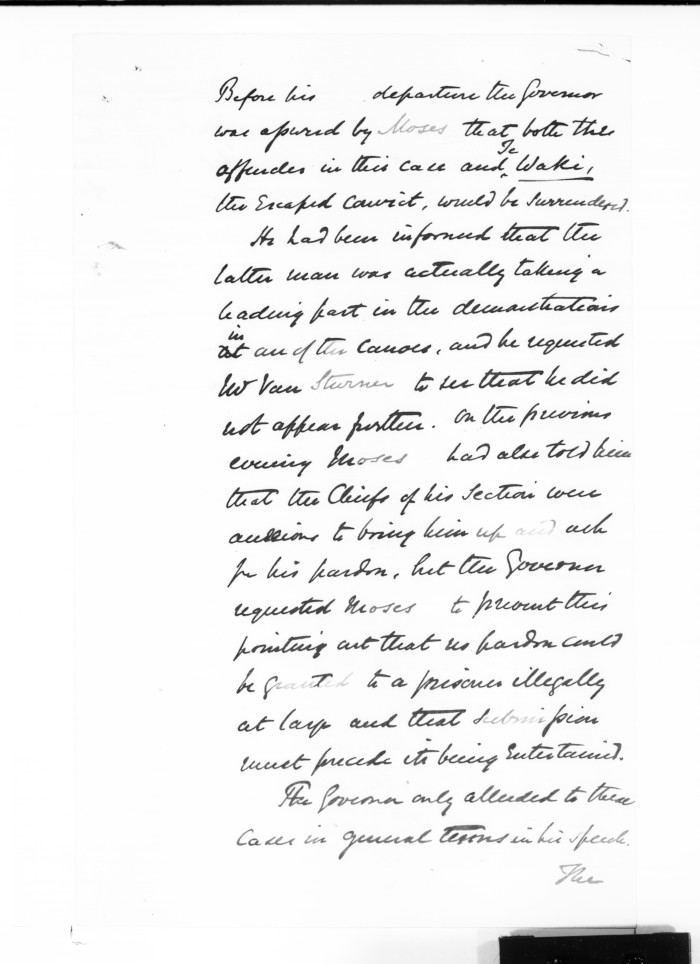 Before his departure the Governor
was assured by Moses that both the
offender in this case and Te Waki,
the Escaped Convict, would be surrendered.
He had been informed that the
latter man was actually taking a
leading part in the demonstrations
in one of the canoes, and he requested
Mr Van Sturmer to see that he did
not appear further. On the previous
evening Moses had also told him
that the Chiefs of his Section were
anxious to bring him up and ask
for his pardon, but the Governor
requested Moses to prevent this
pointing out that no pardon could
be granted to a prisoner illegally
at large and that submission
must precede its being Entertained.
The Governor only alluded to these
Cases in general terms in his speech.
The